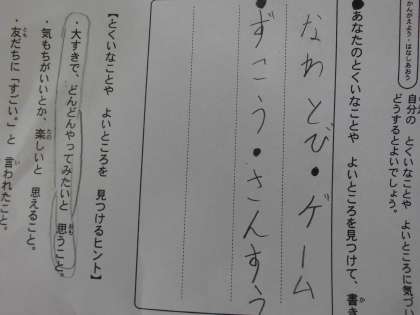 かんがえよう・はなしあおう
自分の とくいなことや よいところに気づい
どうするとよいでしょう。
●あなたのとくいなことや よいところを見つけて、書き
なわとび・ゲーム
ずこう・さんすう
【とくいなことや よいところを 見つけるヒント】
・大すきで、どんどんやってみたいと 思うこと。
・気もちがいいとか、楽しいと 思えること。
・友だちに「すごい。」と 言われたこと。